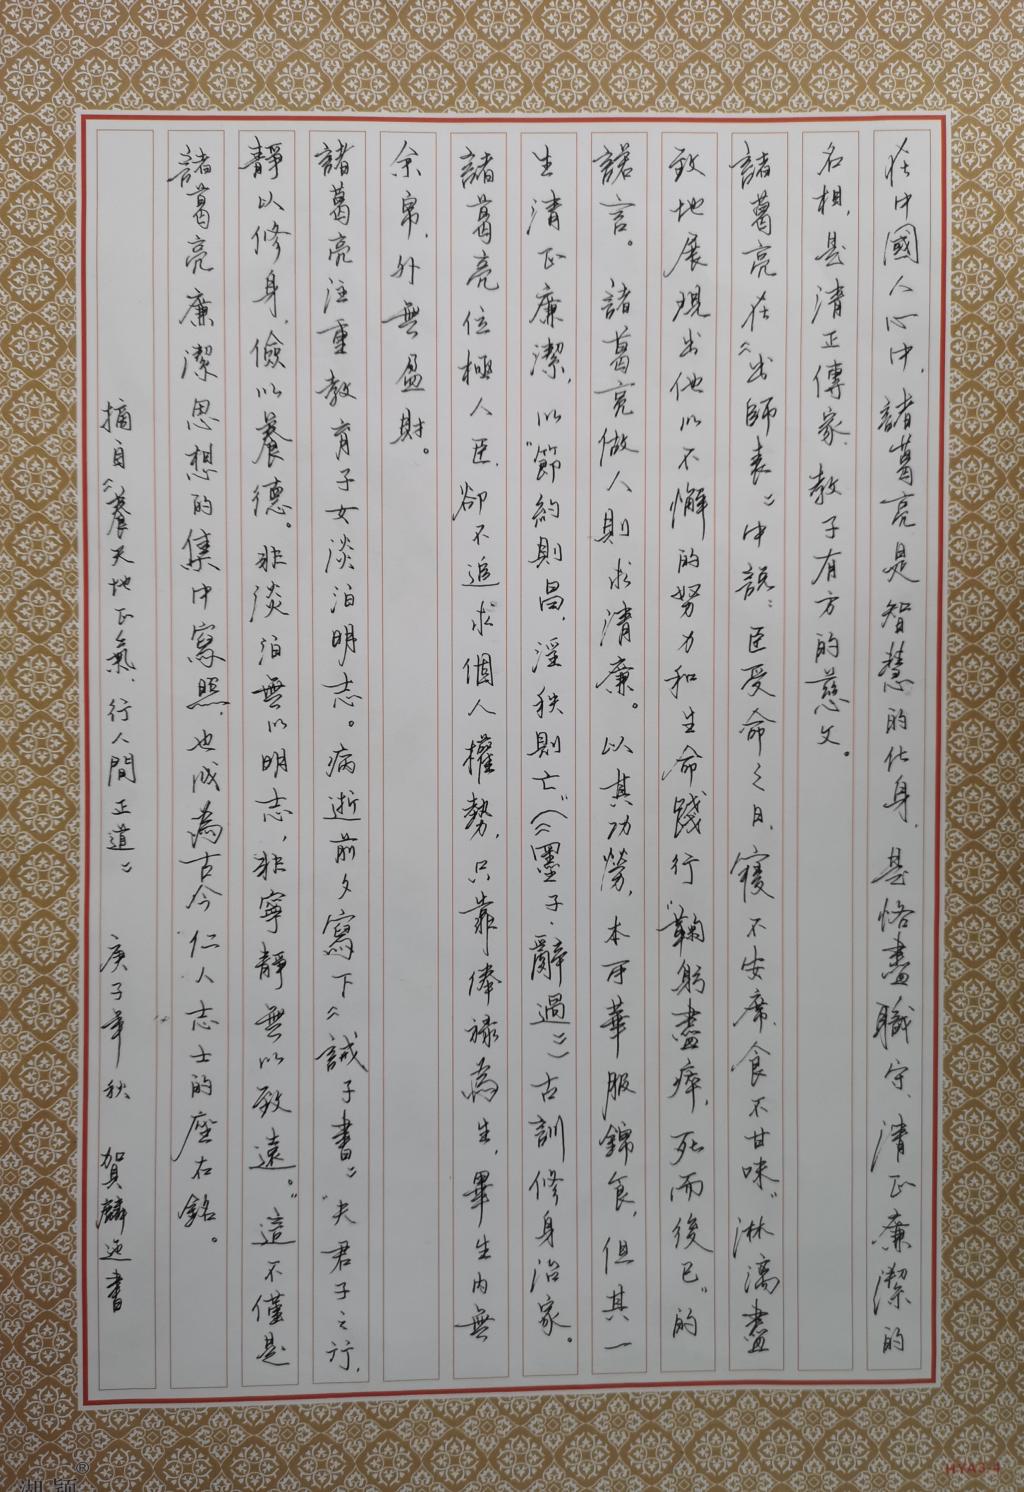 在中國人心中，諸葛亮是智慧的化身，是恪盡職守、清正廉潔的
名相，是清正傳家、教子有方的慈父。
諸葛亮在《出師表》中說：臣受命之日，寢不安席，食不甘味”淋漓盡
致地展現出他以不懈的努力和生命踐行“鞠躬盡瘁，死而後已”的
諾言。諸葛亮做人則求清廉。以其功勞，本可華服錦食，但其一
生清正廉潔，以“節約則昌，淫秩則亡”（《墨子·辭過》）古訓修身治家。
諸葛亮位極人臣，卻不追求個人權勢，只靠俸祿為生，畢生內無
余帛，外無盈財。
諸葛亮注重教育子女淡泊明志。病逝前夕寫下《誡子書》“夫君子之行，
靜以修身，儉以養德。非淡泊無以明志，非寧靜無以致遠。”這不僅是
諸葛亮廉潔思想的集中寫照，也成為古今仁人志士的座右銘。
摘自《養天地正氣，行人間正道》 庚子年秋 賀麟迎書
湖穎®
HYA3-4